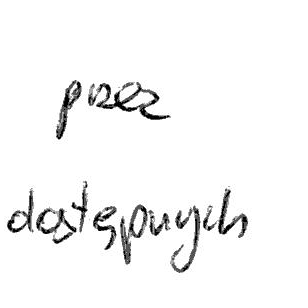 przez
dostępnych